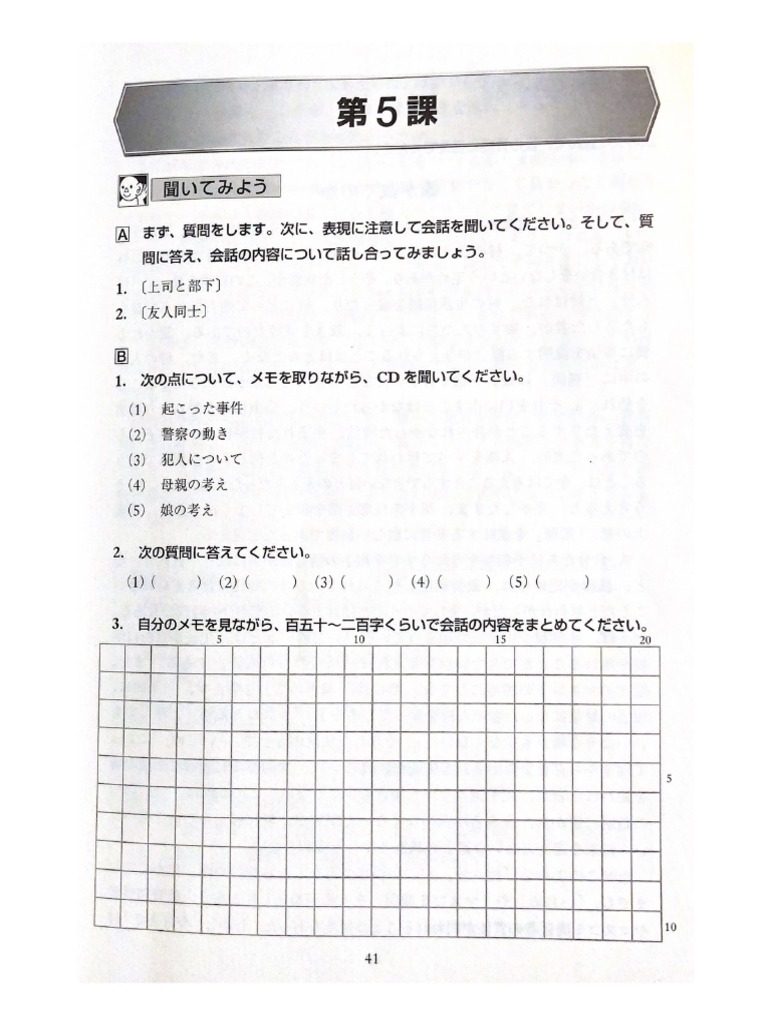 第5課
聞いてみよう
A まず、質問をします。次に、表現に注意して会話を聞いてください。そして、質
問に答え、会話の内容について話し合ってみましょう。
1. 〔上司と部下〕
2. 〔友人同士〕
B
1. 次の点について、メモを取りながら、CDを聞いてください。
(1) 起こった事件
(2) 警察の動き
(3) 犯人について
(4) 母親の考え
(5) 娘の考え
2. 次の質問に答えてください。
(1) ( (2) ( ) (3) ( ) (4) ( ) (5) (
3. 自分のメモを見ながら、百五十～二百字くらいで会話の内容をまとめてください。
5 10 15 20
5
10
41